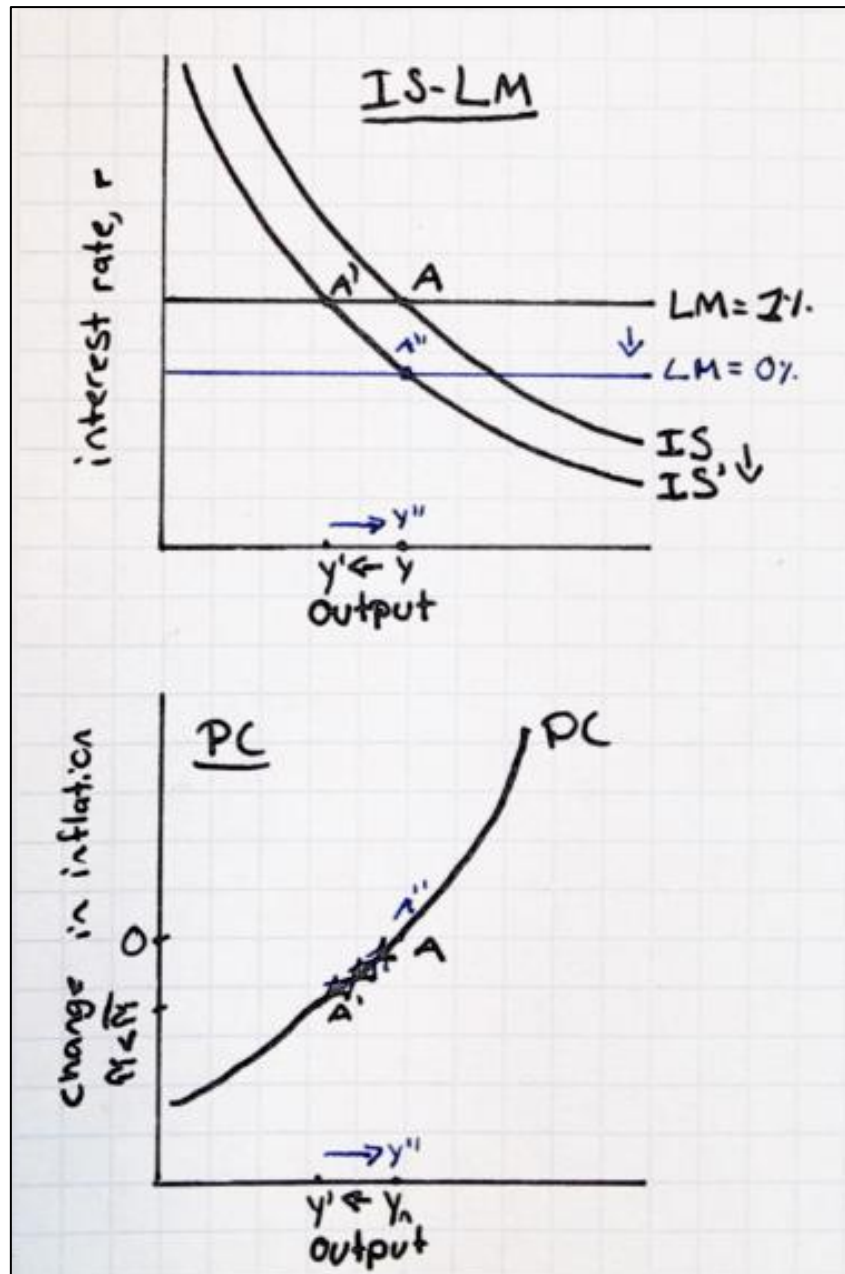 IS-LM
interest rate, r
A' A
LM = 1%
↓
A''
LM = 0%
IS
IS' ↓
→ Y''
Y' ← Y
output
PC
PC
change in inflation
A''
0
A
A'
→ Y''
Y' ← Yn
output